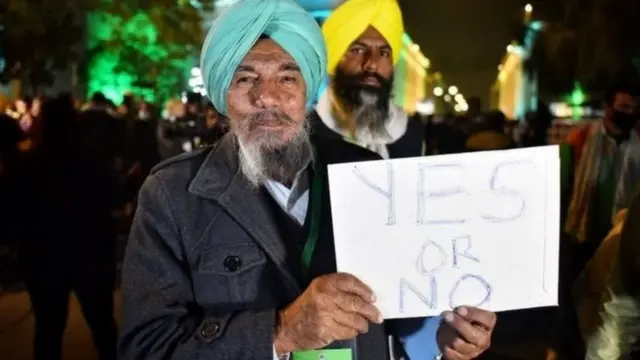 YES
OR
NO